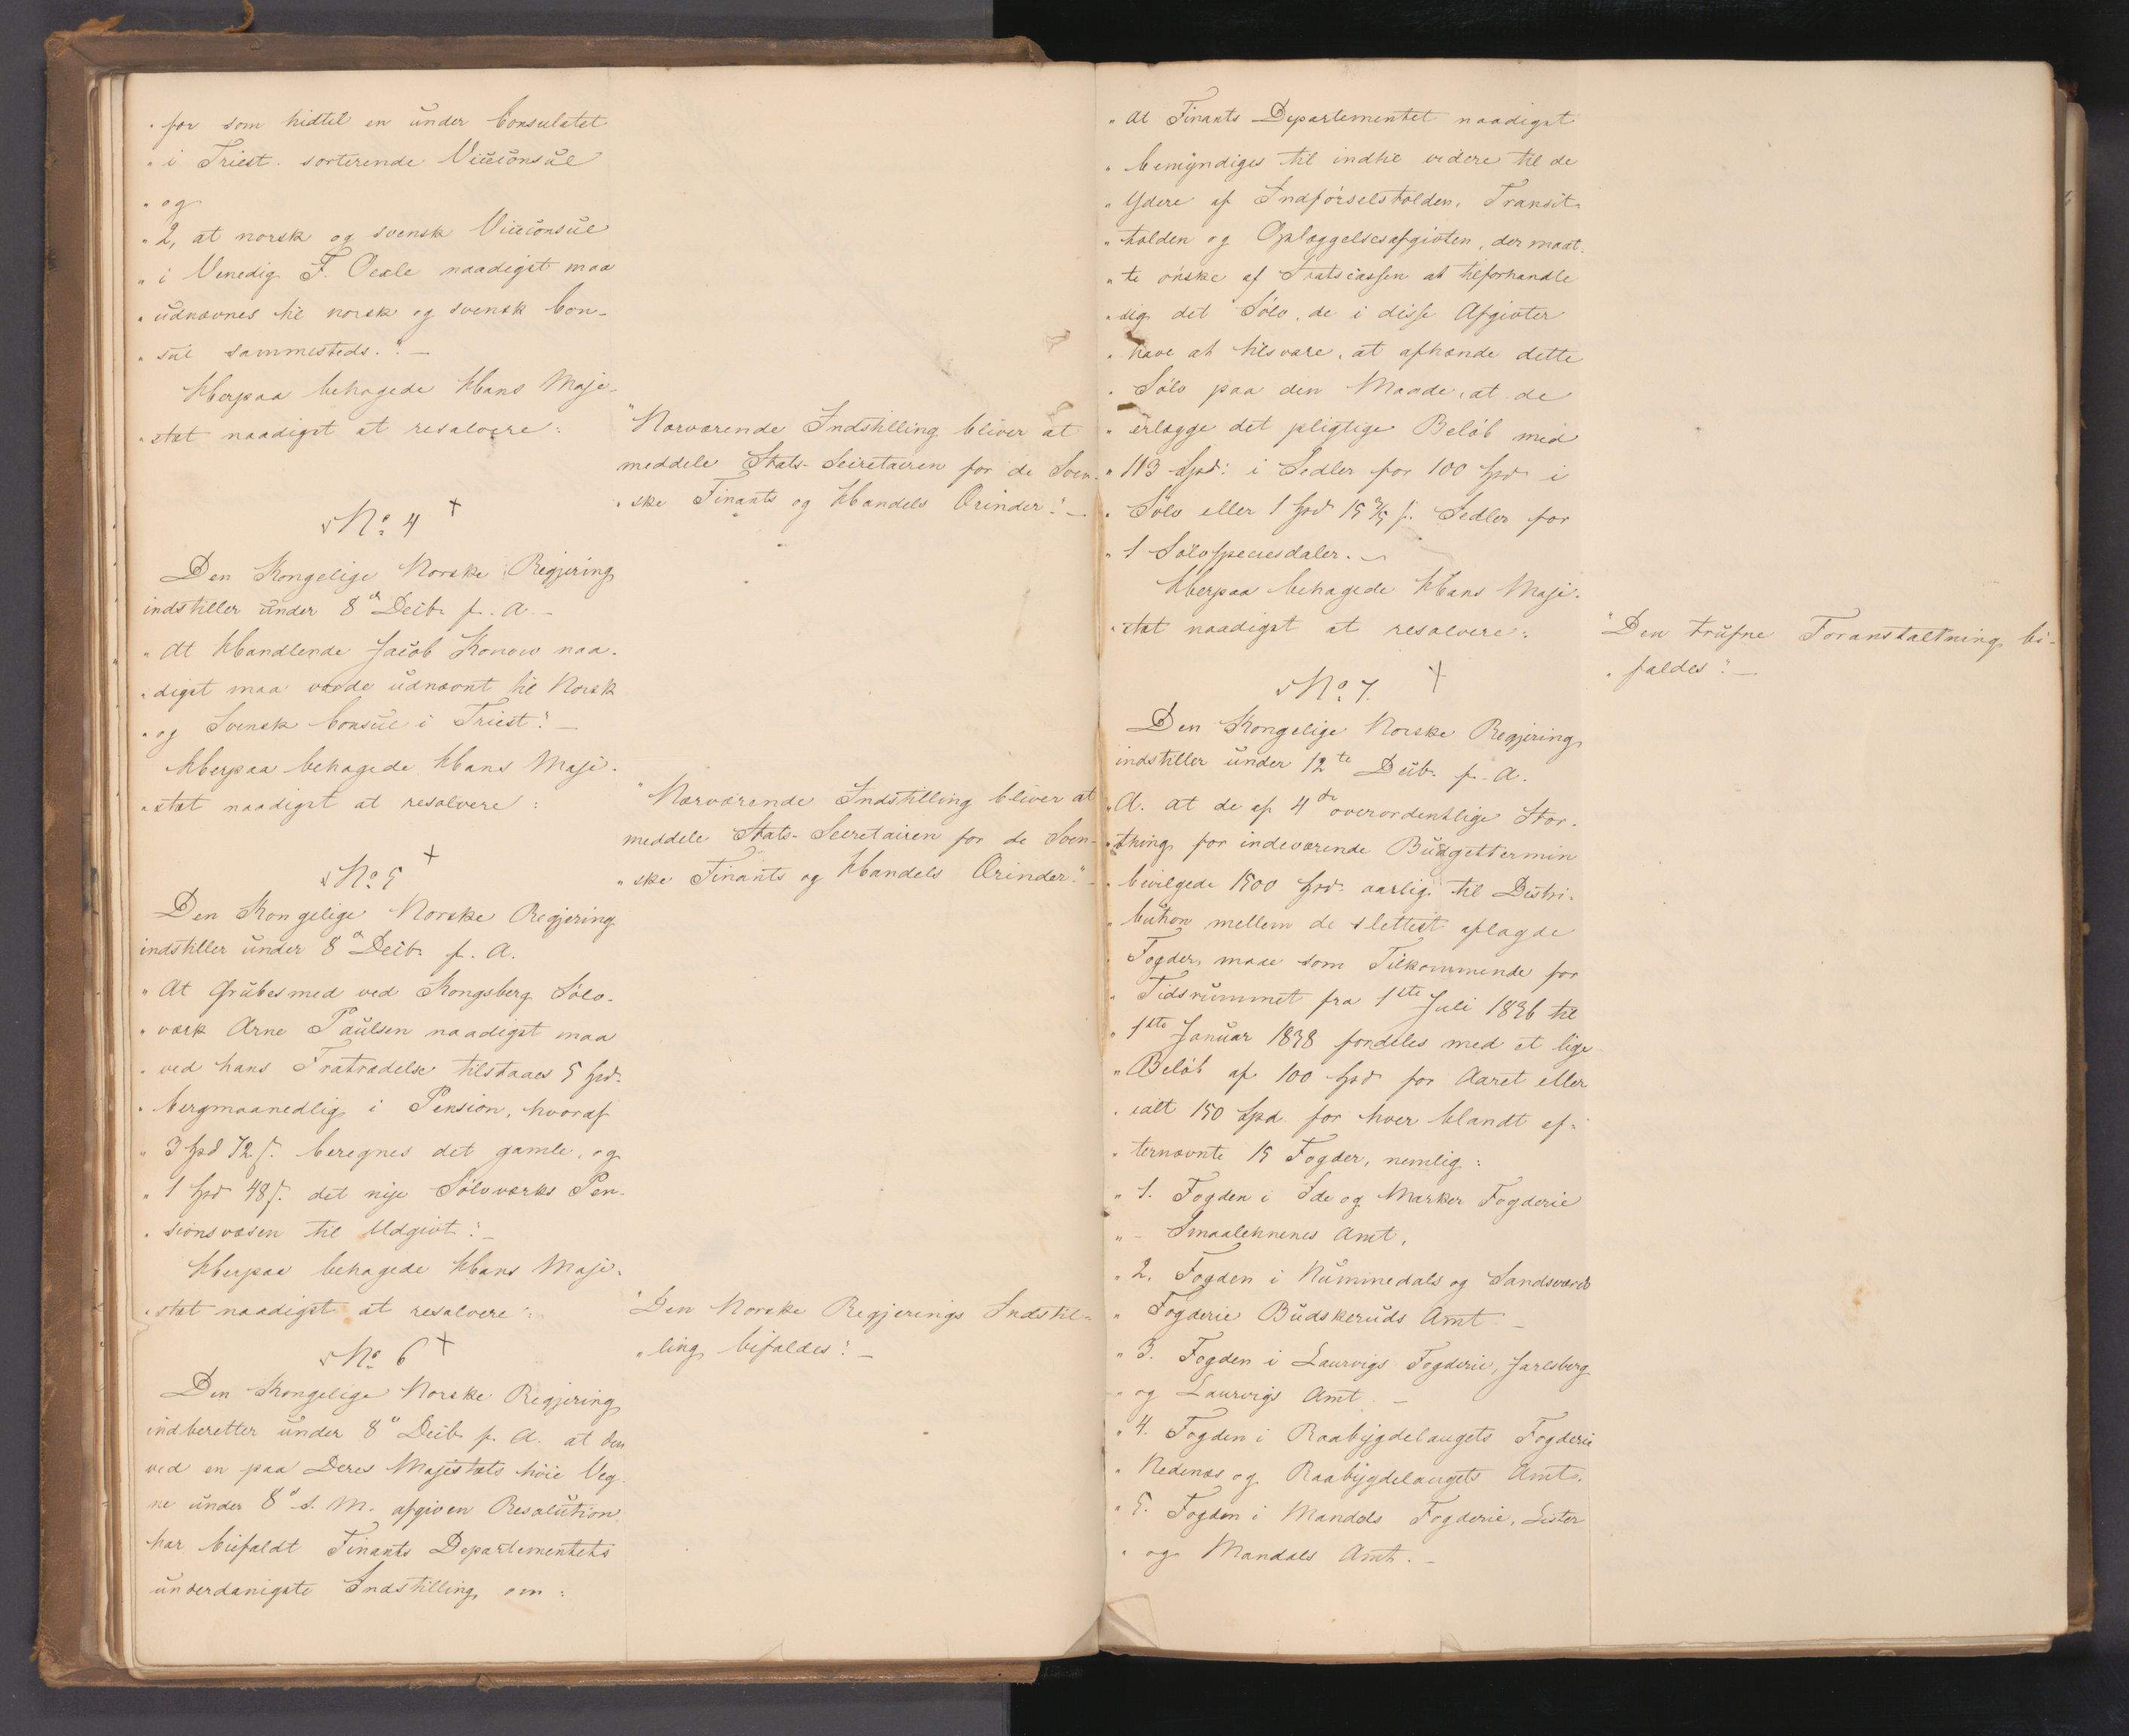 " for som hidtil en under Consulatet
" i Triest sorterende Viceconsul
" og
" 2, at norsk og svensk Viceconsul
" i Venedig F. Oexle naadigst maa
" udnævnes til norsk og svensk Con-
" sul sammesteds." —
Herpaa behagede Hans Maje-
" stæt naadigst at resolvere:
" Nærværende Indstilling bliver at
meddele Stats-Secretairen for de Sven-
" ske Finants og Handels Ærinder." —
No. 4 +
Den Kongelige Norske Regjering
indstiller under 8de Decbr f. A. —
" At Handlende Jacob Konow naa-
" digst maa vorde udnævnt til Norsk
" og Svensk Consul i Triest." —
Herpaa behagede Hans Maje-
" stæt naadigst at resolvere:
" Nærværende Indstilling bliver at
meddele Stats-Secretairen for de Sven-
" ske Finants og Handels Ærinder." —
No. 5 +
Den Kongelige Norske Regjering
indstiller under 8de Decbr f. A.
" At Grubesmed ved Kongsberg Sølv-
" værk Arne Paulsen naadigst maa
" ved hans Fratrædelse tilstaaes 5 Spd.
" bergmaanedlig i Pension, hvoraf
" 3 Spd 72 ß. beregnes det gamle, og
" 1 Spd 48 ß. det nye Sølvværks Pen-
" sionsvæsen til Udgivt." —
Herpaa behagede Hans Maje-
" stæt naadigst at resolvere:
" Den Norske Regjerings Indstil-
" ling bifaldes." —
No. 6 +
Den Kongelige Norske Regjering
indberetter under 8de Decbr f. A. at den
ved en paa Deres Majestæts høie Veg-
ne under 8de s. M. afgiven Resolution
har biefaldt Finants Departementets
underdanigste Indstilling om:
" At Finants Departementet naadigst
" bemyndiges til indtil videre til de
" Ydere af Indførselstolden, Transit-
" tolden og Oplæggelsesafgivten, der maat-
" te ønske af Statscassen at tilforhandle
" sig det Sølv, de i disse Afgivter
" have at tilsvare, at afhænde dette
" Sølv paa den Maade, at de
" erlægge det pligtige Beløb med
" 113 Spd: i Sedler for 100 Spd i
" Sølv eller 1 Spd 15 3/5 ß. Sedler for
" 1 Sølvspeciesdaler. —
Herpaa behagede Hans Maje-
" stæt naadigst at resolvere:
" Den trufne Foranstaltning bi-
" faldes." —
No. 7. +
Den Kongelige Norske Regjering
indstiller under 12te Decbr f. A.
" A. at de af 4de overordentlige Stor-
" thing for indeværende Budgettermin
" bevilgede 1500 Spd. aarlig til Distri-
" bution mellem de slettest aflagde
" Fogder, maae som Tilkommende for
" Tidsrummet fra 1ste Juli 1836 til
" 1ste Januar 1838 fordeles med et lige
" Beløb af 100 Spd for Aaret eller
" ialt 150 Spd. for hver blandt ef-
" ternævnte 15 Fogder, nemlig:
" 1. Fogden i Ide og Marker Fogderie
" – Smaalehnenes Amt,
" 2. Fogden i Nummedals og Sandsværds
" Fogderie Budskeruds Amt. —
" 3. Fogden i Laurvigs Fogderie, Jarlsberg
" og Laurvigs Amt. —
" 4. Fogden i Raabygdelaugets Fogderie
" Nedenæs og Raabygdelaugets Amt.
" 5. Fogden i Mandals Fogderie, Lister
" og Mandals Amt. —